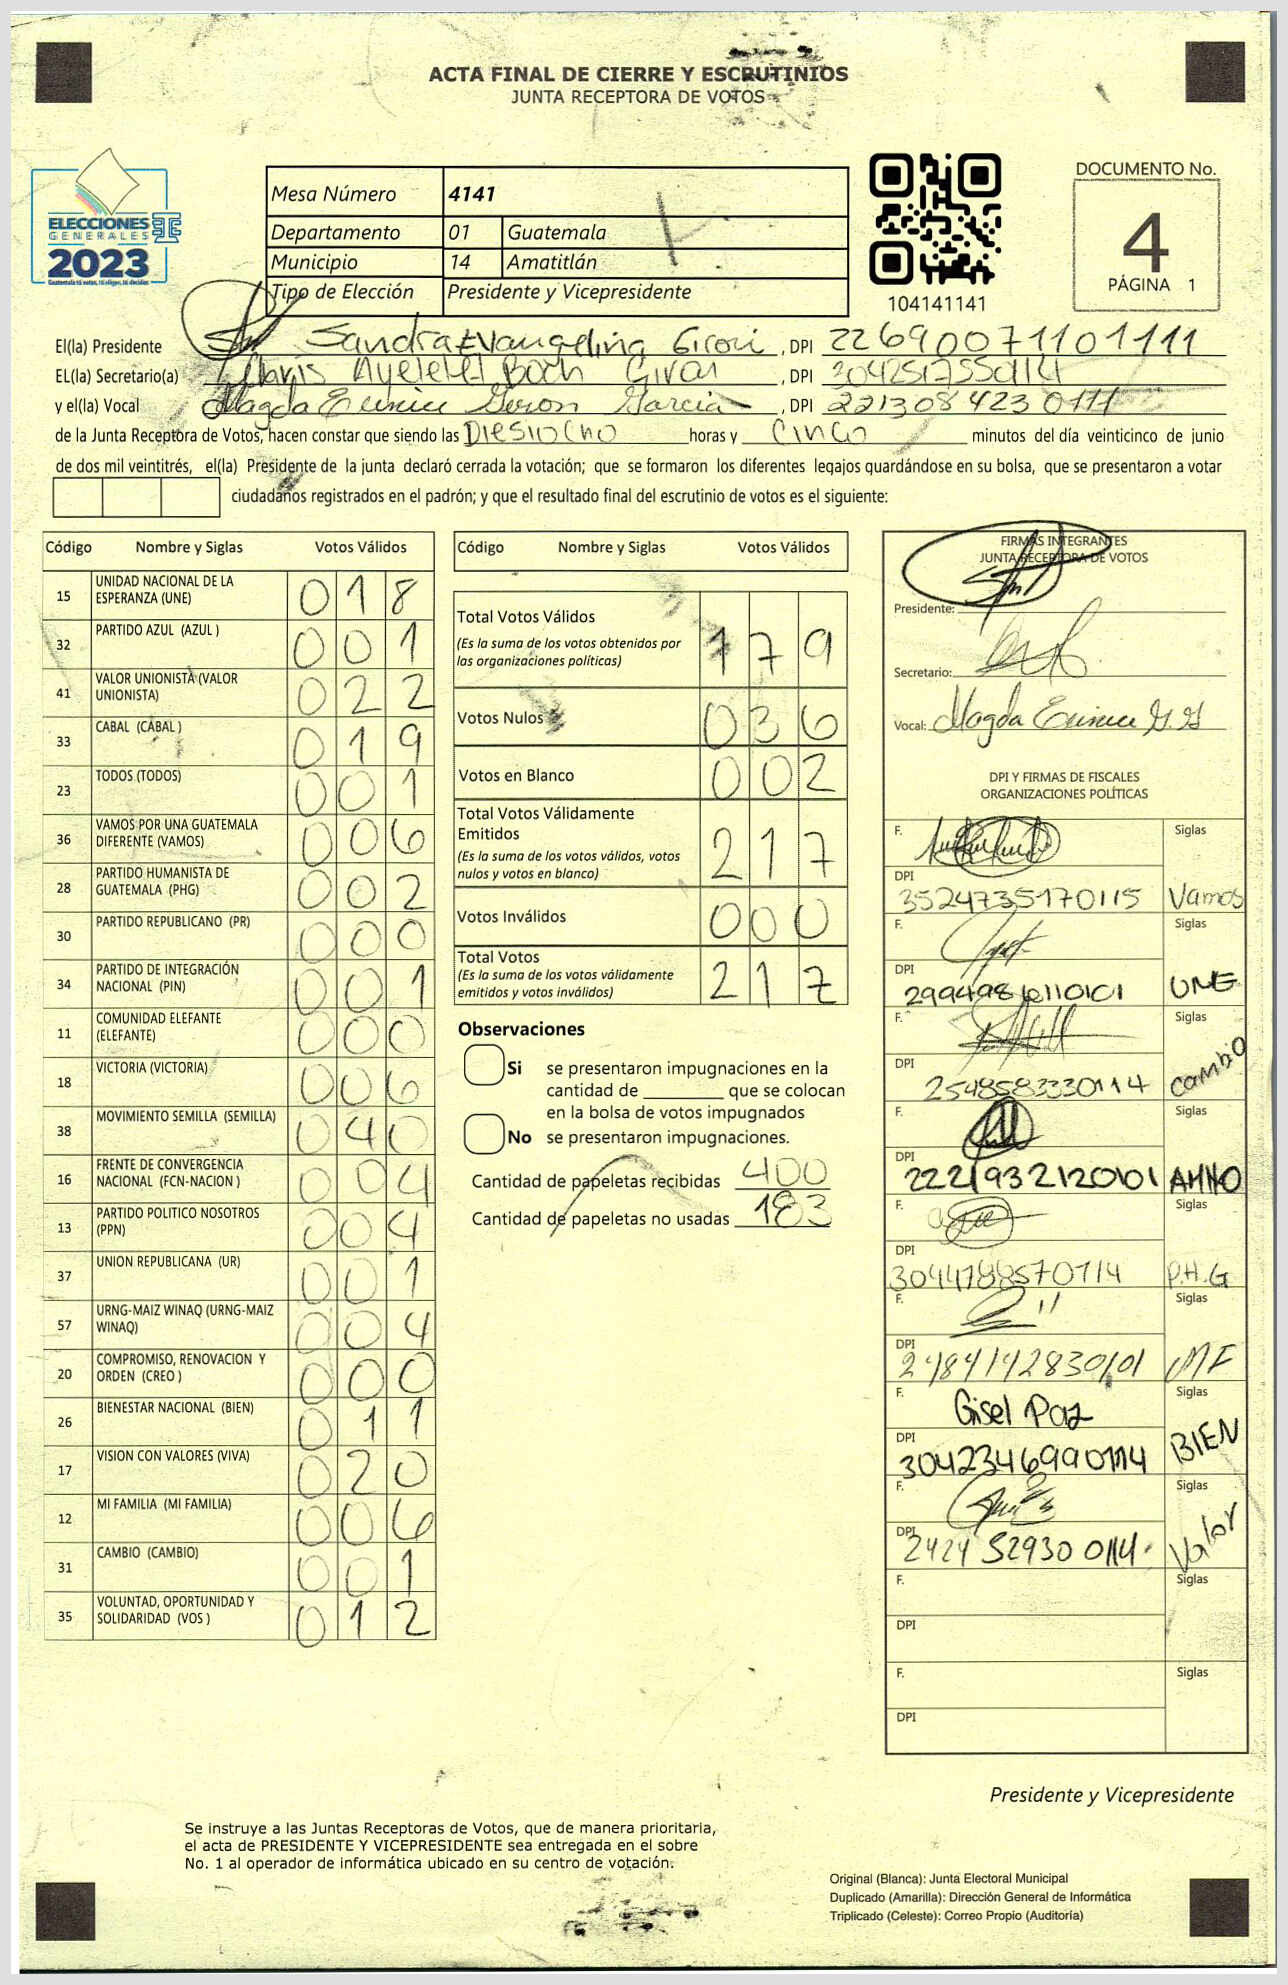 ACTA FINAL DE CIERRE Y ESCRUTINIOS
JUNTA RECEPTORA DE VOTOS
ELECCIONES
GENERALES
2023
Mesa Número 4141
Departamento 01 Guatemala
Municipio 14 Amatitlán
Tipo de Elección Presidente y Vicepresidente
104141141
DOCUMENTO No.
4
PÁGINA 1
El(la) Presidente Sandra Evangelina Giron , DPI 2269007110111
EL(la) Secretario(a) Ayelett Boch Giron , DPI
y el(la) Vocal Magda Eunice Giron Garcia , DPI 2213084230111
de la Junta Receptora de Votos, hacen constar que siendo las Diesiocho horas y Cinco minutos del día veinticinco de junio
de dos mil veintitrés, el(la) Presidente de la junta declaró cerrada la votación; que se formaron los diferentes legajos guardándose en su bolsa, que se presentaron a votar
ciudadanos registrados en el padrón; y que el resultado final del escrutinio de votos es el siguiente:
Código Nombre y Siglas Votos Válidos
15 UNIDAD NACIONAL DE LA ESPERANZA (UNE) 018
32 PARTIDO AZUL (AZUL ) 001
41 VALOR UNIONISTA (VALOR UNIONISTA) 022
33 CABAL (CABAL ) 019
23 TODOS (TODOS) 001
36 VAMOS POR UNA GUATEMALA DIFERENTE (VAMOS) 006
28 PARTIDO HUMANISTA DE GUATEMALA (PHG) 002
30 PARTIDO REPUBLICANO (PR) 000
34 PARTIDO DE INTEGRACIÓN NACIONAL (PIN) 001
11 COMUNIDAD ELEFANTE (ELEFANTE) 000
18 VICTORIA (VICTORIA) 006
38 MOVIMIENTO SEMILLA (SEMILLA) 040
16 FRENTE DE CONVERGENCIA NACIONAL (FCN-NACION ) 004
13 PARTIDO POLITICO NOSOTROS (PPN) 004
37 UNION REPUBLICANA (UR) 001
57 URNG-MAIZ WINAQ (URNG-MAIZ WINAQ) 004
20 COMPROMISO, RENOVACION Y ORDEN (CREO ) 000
26 BIENESTAR NACIONAL (BIEN) 011
17 VISION CON VALORES (VIVA) 020
12 MI FAMILIA (MI FAMILIA) 006
31 CAMBIO (CAMBIO) 001
35 VOLUNTAD, OPORTUNIDAD Y SOLIDARIDAD (VOS ) 012
Código Nombre y Siglas Votos Válidos
Total Votos Válidos 179
(Es la suma de los votos obtenidos por
las organizaciones políticas)
Votos Nulos 036
Votos en Blanco 002
Total Votos Válidamente
Emitidos 217
(Es la suma de los votos válidos, votos
nulos y votos en blanco)
Votos Inválidos 000
Total Votos 217
(Es la suma de los votos válidamente
emitidos y votos inválidos)
Observaciones
Si se presentaron impugnaciones en la
cantidad de que se colocan
en la bolsa de votos impugnados
No se presentaron impugnaciones.
Cantidad de papeletas recibidas 400
Cantidad de papeletas no usadas 183
FIRMAS INTEGRANTES
JUNTA RECEPTORA DE VOTOS
Presidente:
Secretario:
Vocal: Magda Eunice G.G
DPI Y FIRMAS DE FISCALES
ORGANIZACIONES POLÍTICAS
F. Siglas
DPI 3524735170115 Vamos
F. Siglas
DPI UNE
F. Siglas
DPI 2548583330114 Cambio
F. Siglas
DPI 2221932120101
F. Siglas
DPI 3044788570114 P.H.G
F. Siglas
DPI 2484142830101 MF
F. Gisel Paz Siglas
DPI 3042346990114 BIEN
F. Siglas
DPI 2424 52930 0114 Valor
F. Siglas
DPI
F. Siglas
DPI
Presidente y Vicepresidente
Se instruye a las Juntas Receptoras de Votos, que de manera prioritaria,
el acta de PRESIDENTE Y VICEPRESIDENTE sea entregada en el sobre
No. 1 al operador de informática ubicado en su centro de votación.
Original (Blanca): Junta Electoral Municipal
Duplicado (Amarilla): Dirección General de Informática
Triplicado (Celeste): Correo Propio (Auditoría)